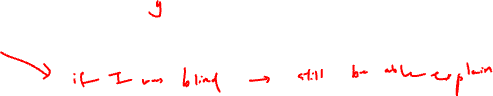 y
if I was blind → still be able explain